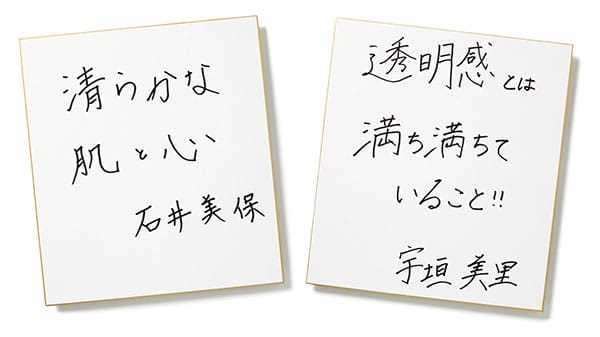 清らかな
肌と心
石井美保
透明感とは
満ち満ちて
いること!!
宇垣美里